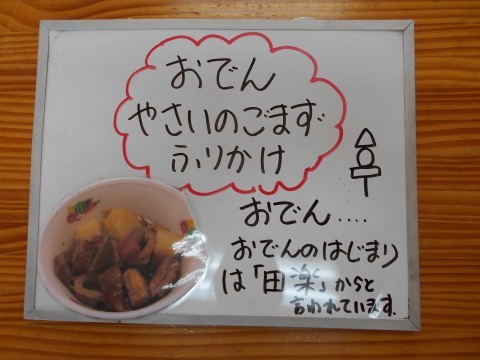 おでん
やさいのごまず
ふりかけ
おでん....
おでんのはじまり
は「田楽」からと
言われています.